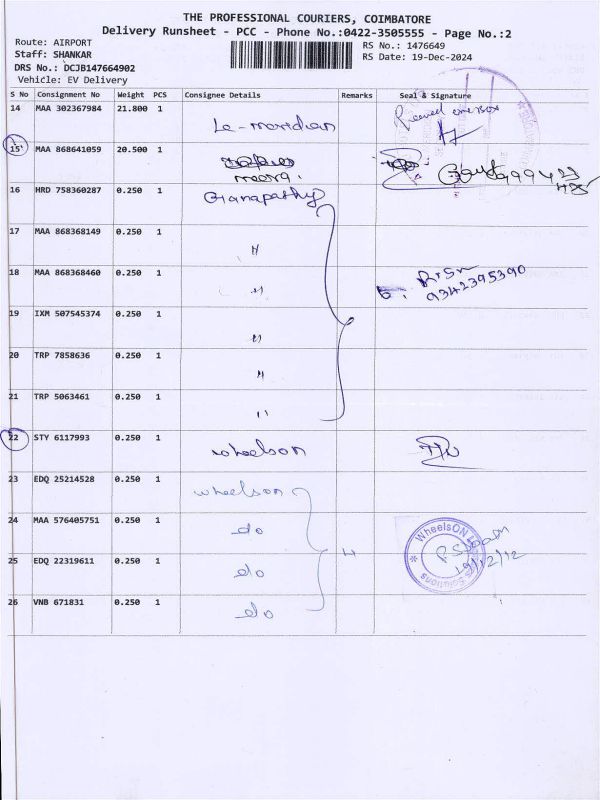 THE PROFESSIONAL COURIERS, COIMBATORE
Delivery Runsheet - PCC - Phone No.:0422-3505555 - Page No.:2
Route: AIRPORT
Staff: SHANKAR
DRS No.: DCJB147664902
Vehicle: EV Delivery
RS No.: 1476649
RS Date: 19-Dec-2024
S No Consignment No Weight PCS Consignee Details Remarks Seal & Signature
14 MAA 302367984 21.800 1 Le-meridian
15 MAA 868641059 20.500 1
16 HRD 758360287 0.250 1 Ganapathy
17 MAA 868368149 0.250 1 "
18 MAA 868368460 0.250 1 " 9342395390
19 IXM 507545374 0.250 1 "
20 TRP 7858636 0.250 1 "
21 TRP 5063461 0.250 1 "
22 STY 6117993 0.250 1 wheelson
23 EDQ 25214528 0.250 1 wheelson
24 MAA 576405751 0.250 1 do 4 WheelsON
25 EDQ 22319611 0.250 1 do 19/12/12 Solutions
26 VNB 671831 0.250 1 do